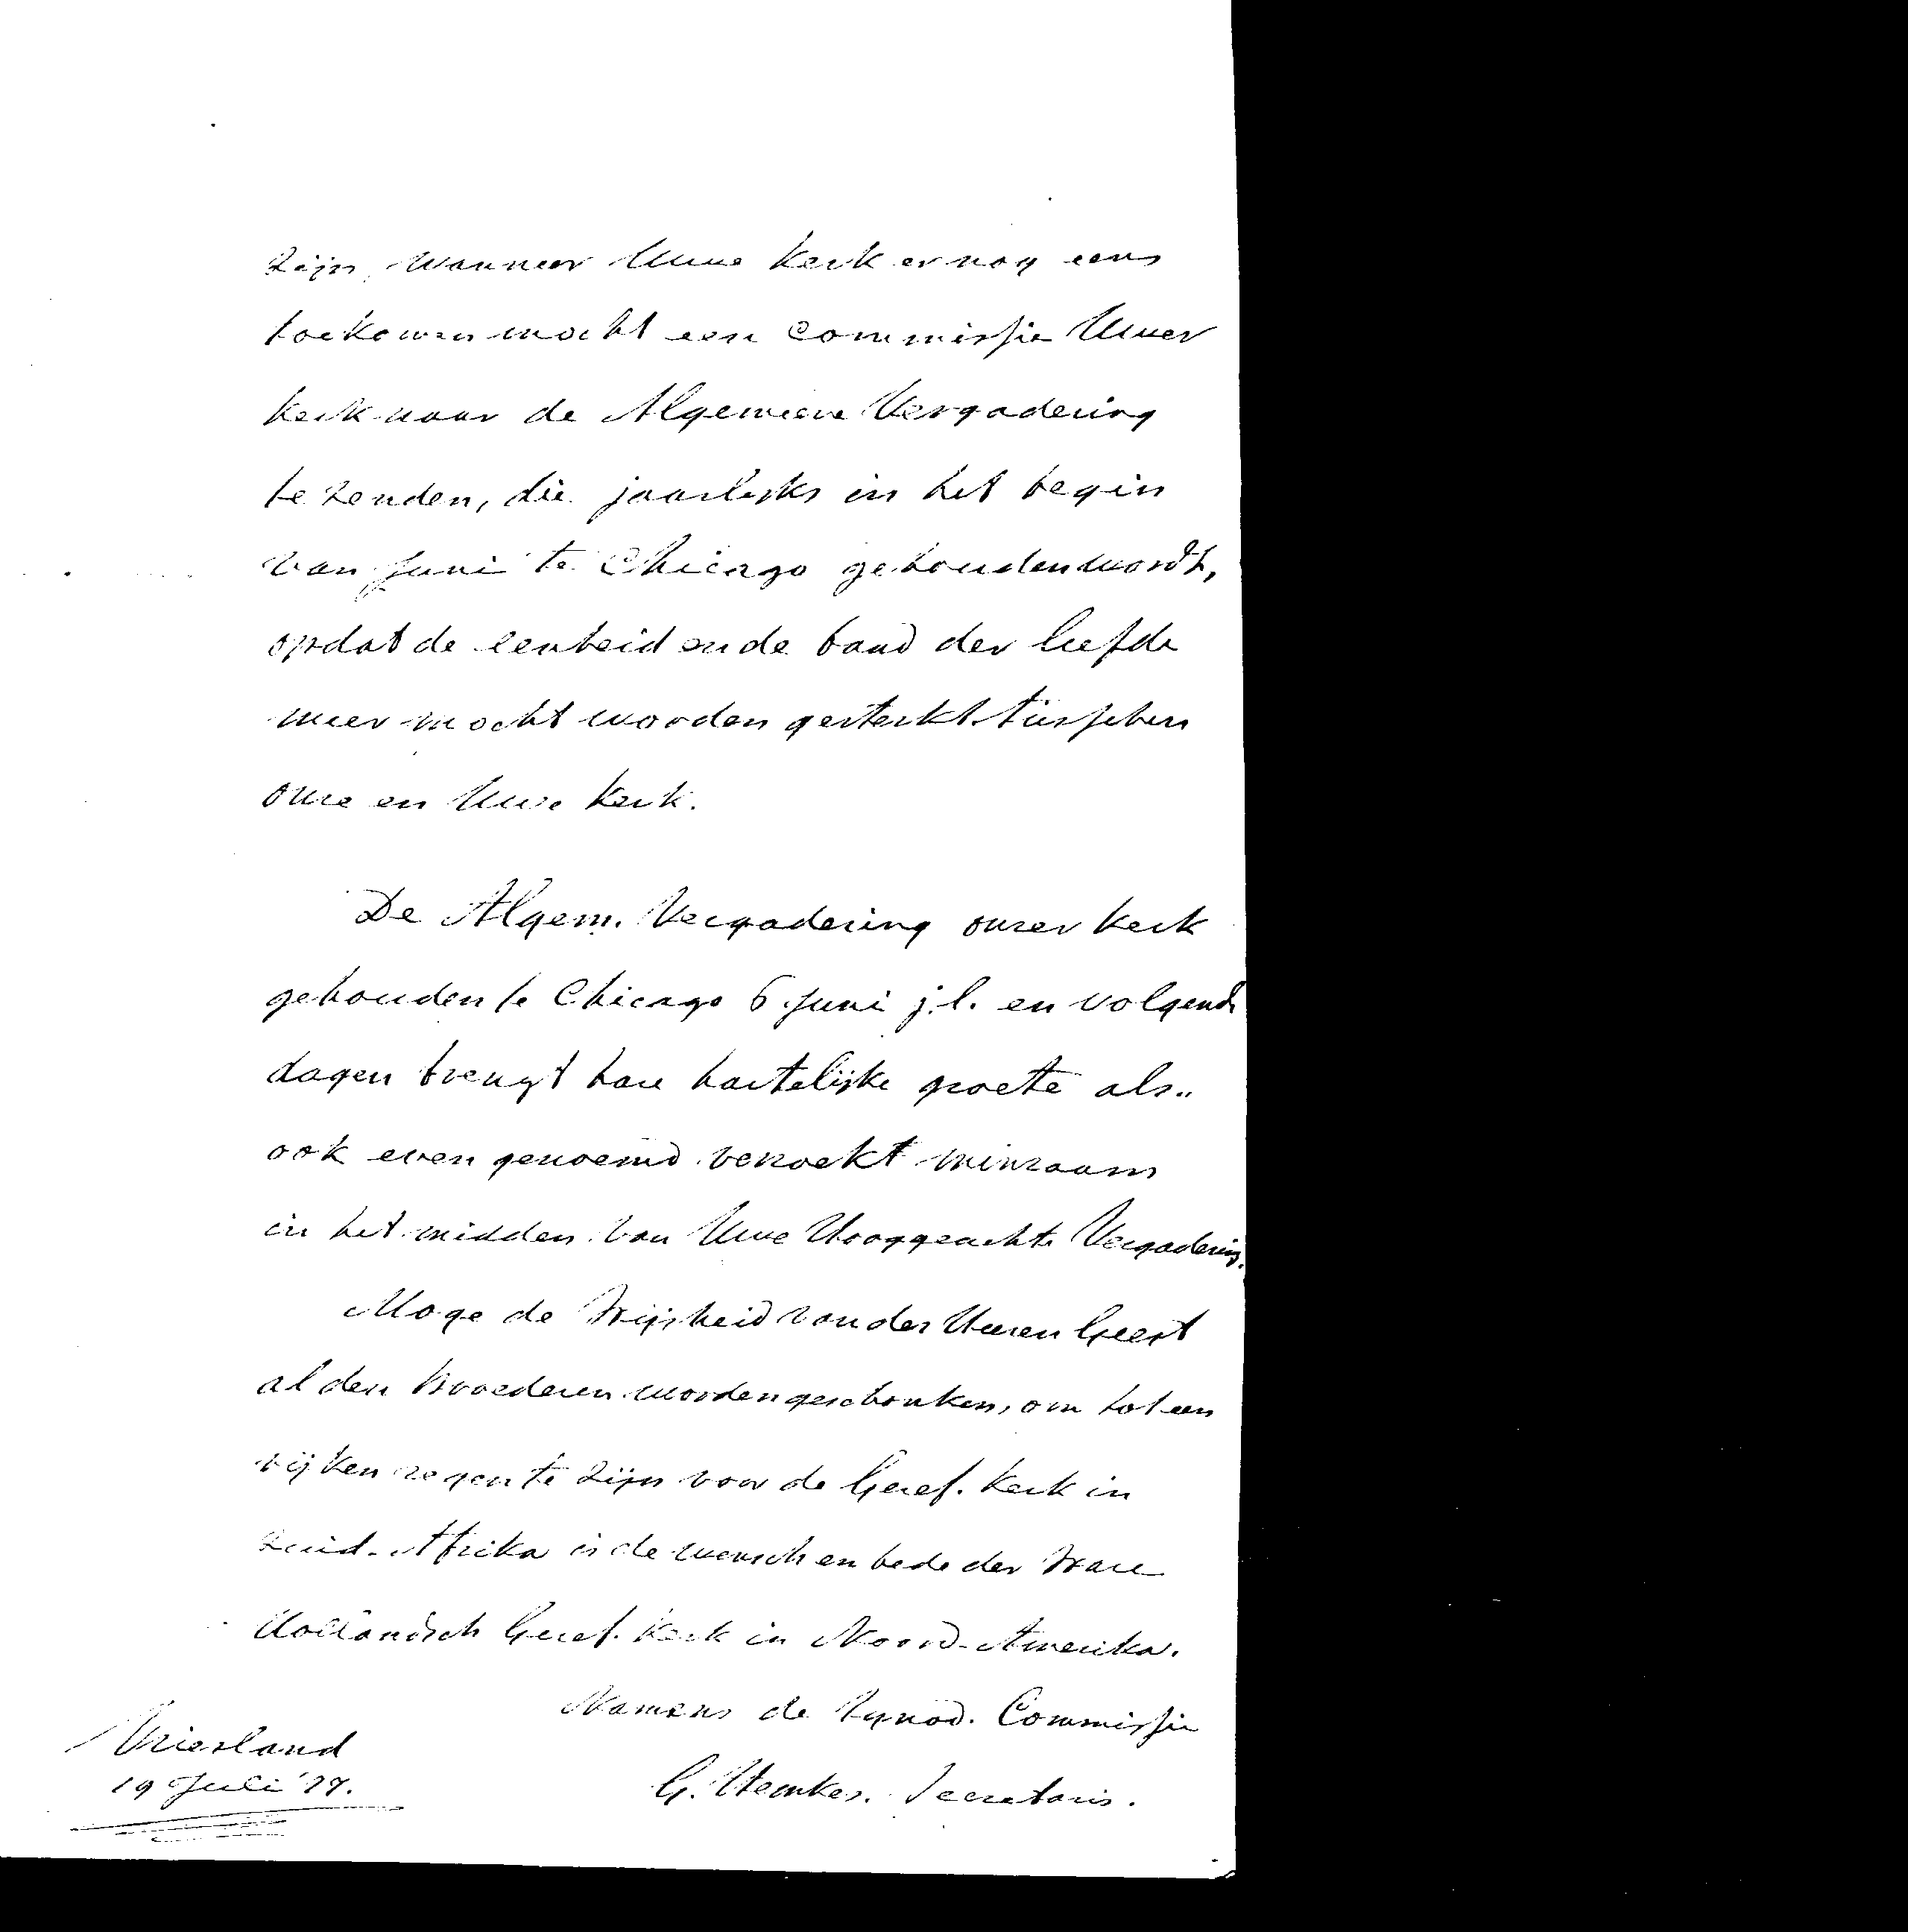 zijn, wanneer Uwe Kerk er nog eens
toekomen mocht een Commissie Uwer
Kerk naar de Algemeene Vergadering
te zenden, die jaarlijks in het begin
van Juni te Chicago gehouden wordt,
opdat de eenheid en de band der liefde
meer mocht worden gesterkt tusschen
onze en Uwe Kerk.
De Algem. Vergadering onzer Kerk
gehouden te Chicago 6 Juni j.l. en volgende
dagen brengt hare hartelijke groete als..
ook even genoemd verzoekt minzaam
in het midden van Uwe Hooggeachte Vergadering.
Moge de Wijsheid van des Heeren Geest
al den Broederen worden geschonken, om tot een
rijken zegen te zijn voor de Geref. Kerk in
Zuid-Afrika is de wensch en bede der Ware
Hollandsch Geref. Kerk in Noord-Amerika.
Namens de Synod. Commissie
Vriesland
19 Juli '77.
G. Hemkes. Secretaris.